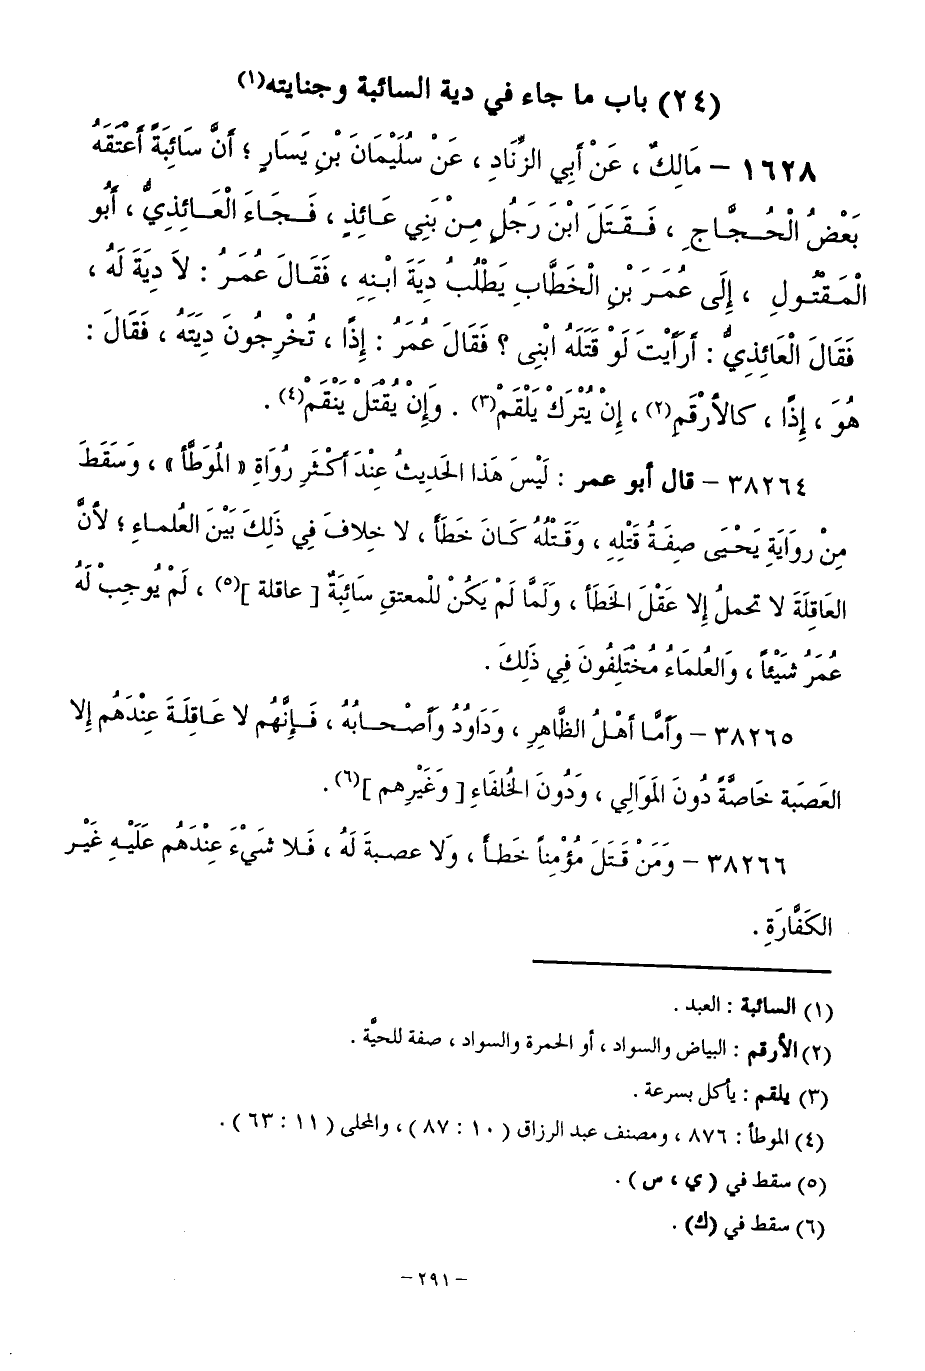 (٢٤) باب ما جاء في دية السائبة وجنايته(١)
١٦٢٨ – مَالِكٌ ، عَنْ أَبِي الزِّنَادِ ، عَنْ سُلَيْمَانَ بْنِ يَسَارٍ ؛ أَنَّ سَائِبَةً أَعْتَقَهُ
بَعْضُ الْحُجَّاجِ ، فَقَتَلَ ابْنَ رَجُلٍ مِنْ بَنِي عَائِذٍ ، فَجَاءَ الْعَائِذِيُّ ، أَبُو
الْمَقْتُولِ ، إِلَى عُمَرَ بْنِ الْخَطَّابِ يَطْلُبُ دِيَةَ ابْنِهِ ، فَقَالَ عُمَرُ : لاَ دِيَةَ لَهُ ،
فَقَالَ الْعَائِذِيُّ : أَرَأَيْتَ لَوْ قَتَلَهُ ابْنِى ؟ فَقَالَ عُمَرُ : إِذًا ، تُخْرِجُونَ دِيَتَهُ ، فَقَالَ :
هُوَ ، إِذًا ، كالأَرْقَمِ(٢) ، إِنْ يُتْرَكْ يَلْقَمْ(٣) . وَإِنْ يُقْتَلْ يَنْقَمْ(٤) .
٣٨٢٦٤ – قال أبو عمر : لَيْسَ هَذا الحَدِيثُ عِنْدَ أَكْثَرِ رُوَاةِ « المُوَطَّأ » ، وَسَقَطَ
مِنْ رِوَايَةِ يَحْيَى صِفَةُ قَتْلِهِ ، وَقَتْلُهُ كَانَ خَطَأً ، لا خِلافَ فِي ذَلِكَ بَيْنَ العُلماءِ ؛ لأَنَّ
العَاقِلَةَ لا تحملُ إِلا عَقْلَ الخَطَأ ، وَلَمَّا لَمْ يَكُنْ لْلمعتقِ سَائِبَةً [ عاقلة ](٥) ، لَمْ يُوجِبْ لَهُ
عُمَرُ شَيْئاً ، وَالعُلمَاءُ مُخْتَلِفُونَ فِي ذَلِكَ .
٣٨٢٦٥ – وَأَمَّا أَهْلُ الظَّاهِرِ ، وَدَاوُدُ وَأَصْحَابُهُ ، فَإِنَّهُم لا عَاقِلَةَ عِنْدَهُم إِلا
العَصَبَة خَاصَّةً دُونَ المَوَالِي ، وَدُونَ الحُلفَاءِ [ وَغَيْرِهم ](٦) .
٣٨٢٦٦ – وَمَنْ قَتَلَ مُؤْمِناً خَطأ ، وَلا عصبةَ لَهُ ، فَلا شَيْءَ عِنْدَهُم عَلَيْهِ غَيْر
الكَفَّارَةِ .
(١) السائبة : العبد .
(٢) الأرقم : البياض والسواد ، أو الحمرة والسواد ، صفة للحيَّة .
(٣) يلقم : يأكل بسرعة .
(٤) الموطأ : ٨٧٦ ، ومصنف عبد الرزاق ( ١٠ : ٨٧ ) ، والمحلى ( ١١ : ٦٣ ) .
(٥) سقط في ( ي ، س ) .
(٦) سقط في (ك) .
– ٢٩١ –